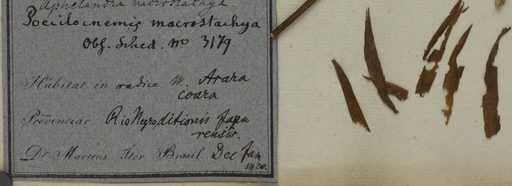 Aphelandra macrostachya
Poecilocnemis macrostachya
Obs. Sched. no 3179
Habitat in radice M. Arara
coara
Provinciae Rio Negro ditionis Japu
rensis.
Dr. Martius Iter Brasil. Dec Jan
1820.